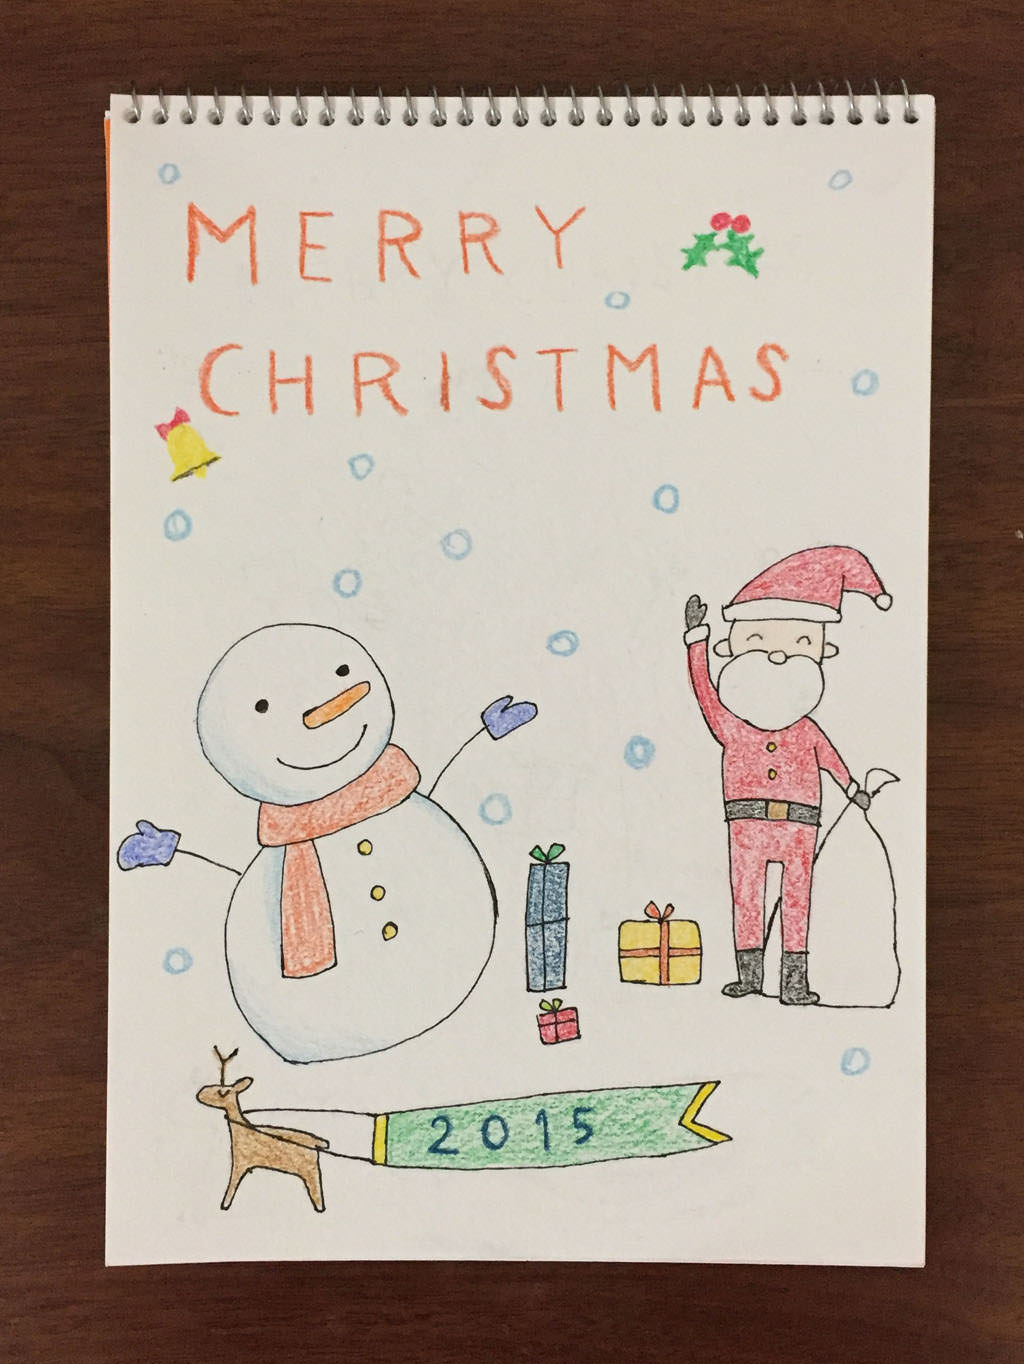 MERRY
CHRISTMAS
2015